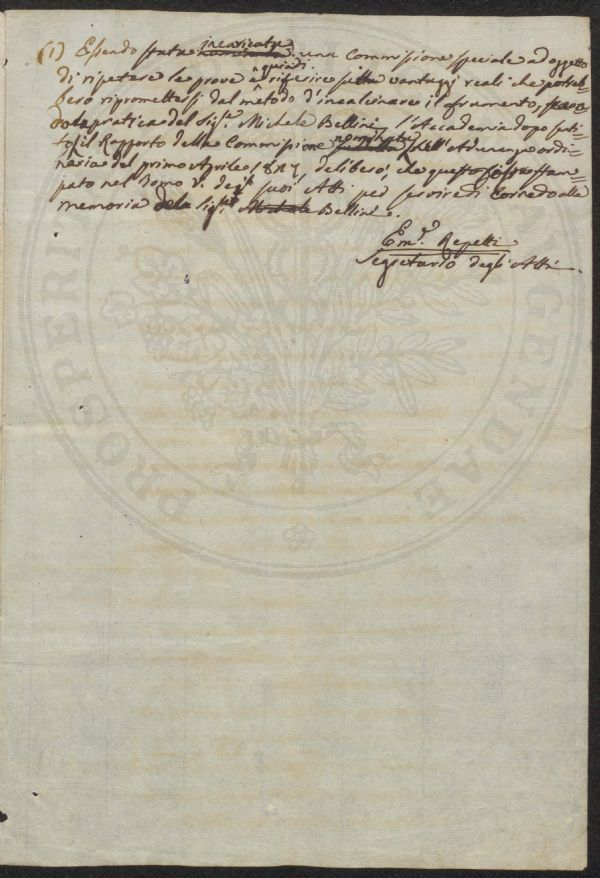 (1) Essendo stata incaricata una Commissione speciale ad oggetto
di ripetere le prove e quindi riferire sulla vantaggi reali che potreb-
bero ripromettersi dal metodo d'incalcinare il frumento, secon-
do la pratica del Sig.r Michele Bellini l'Accademia dopo sen-
tito il Rapporto della Commissione nominata nell'Adunanza ordi-
naria del primo Aprile 1827, deliberò, che questo fosse stam-
pato nel Tomo V. degli suoi Atti per servire di Corredo alla
memoria del Sig.r Bellini.
Em.e Repetti
Segretario degli Atti.
PROSPERI
AUGENDAE